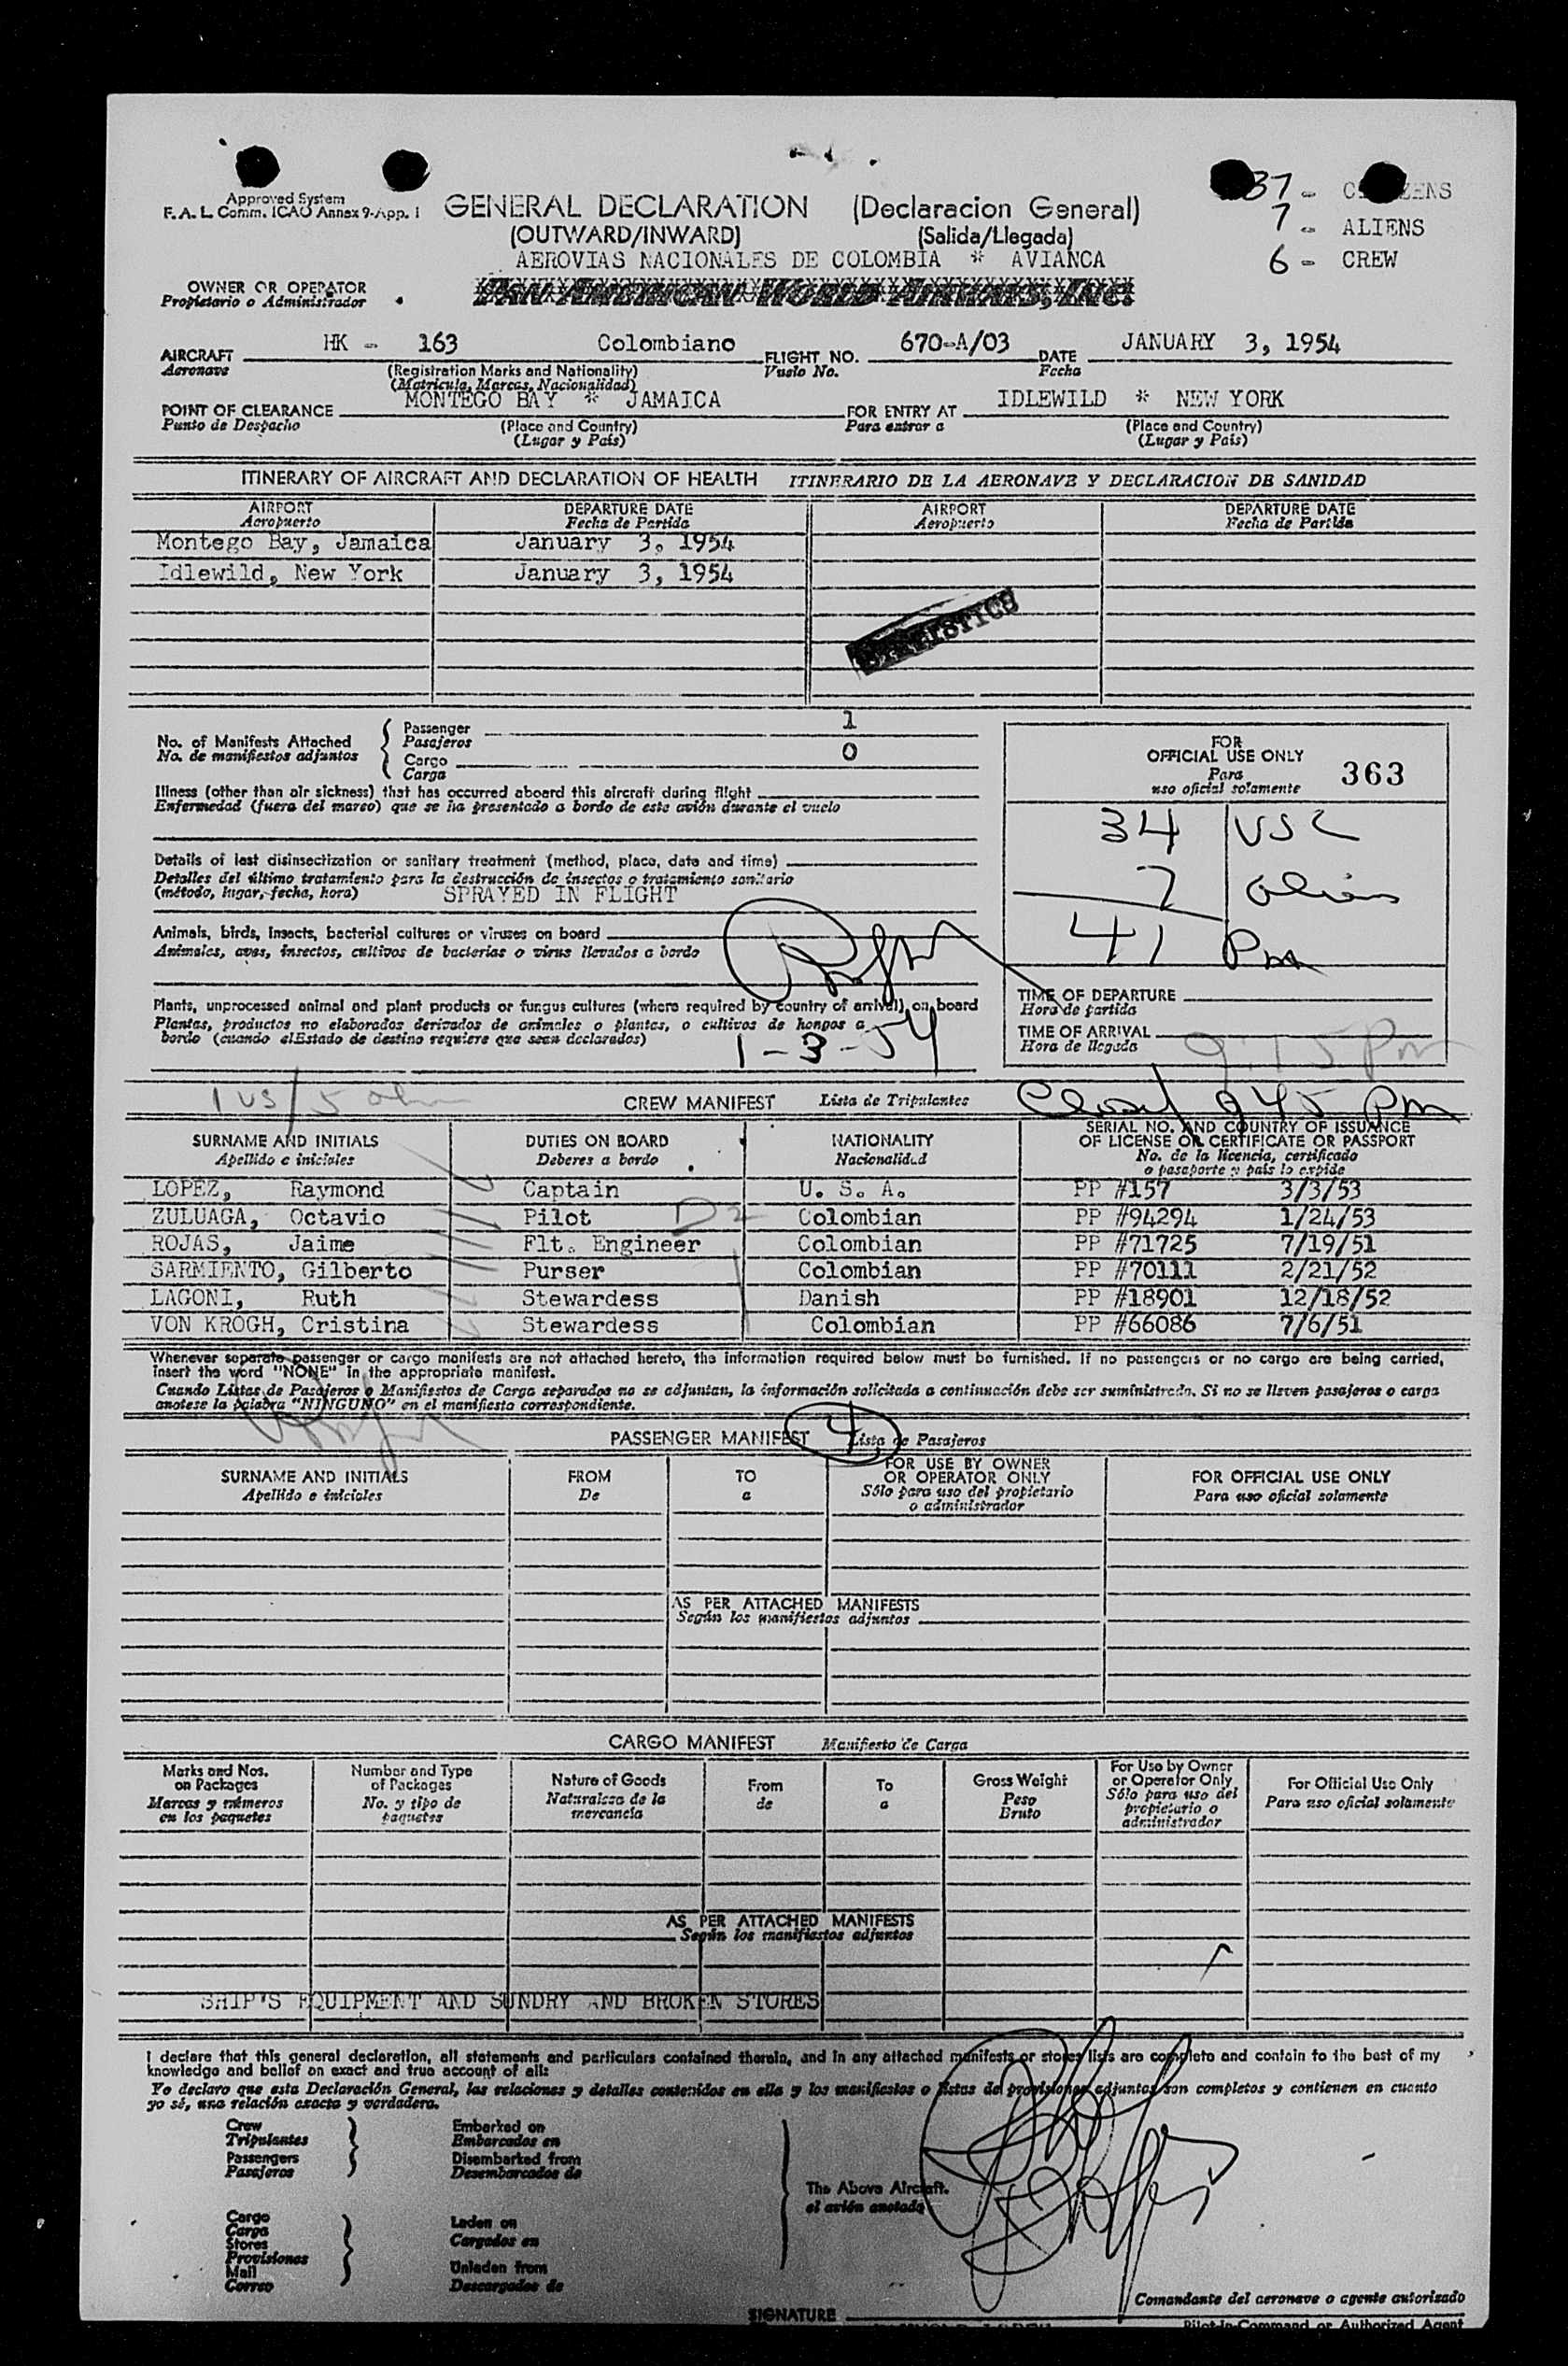 Approved System
F. A. L. Comm. ICAO Annex 9-App. 1
GENERAL DECLARATION (Declaracion General)
(OUTWARD/INWARD) (Salida/Llegada)
37 - CITIZENS
7 - ALIENS
6 - CREW
AEROVIAS NACIONALES DE COLOMBIA * AVIANCA
OWNER OR OPERATOR
Propietario o Administrador
PAN AMERICAN WORLD AIRWAYS, INC.
AIRCRAFT HK - 163 Colombiano FLIGHT NO. 670-A/03 DATE JANUARY 3, 1954
Aeronave (Registration Marks and Nationality) Vuelo No. Fecha
(Matricula, Marcas, Nacionalidad)
POINT OF CLEARANCE MONTEGO BAY * JAMAICA FOR ENTRY AT IDLEWILD * NEW YORK
Punto de Despacho (Place and Country) Para entrar a (Place and Country)
(Lugar y País) (Lugar y País)
ITINERARY OF AIRCRAFT AND DECLARATION OF HEALTH ITINERARIO DE LA AERONAVE Y DECLARACION DE SANIDAD
AIRPORT DEPARTURE DATE AIRPORT DEPARTURE DATE
Aeropuerto Fecha de Partida Aeropuerto Fecha de Partida
Montego Bay, Jamaica January 3, 1954
Idlewild, New York January 3, 1954
STATISTICS
No. of Manifests Attached
No. de manifiestos adjuntos
Passenger 1
Pasajeros
Cargo 0
Carga
FOR
OFFICIAL USE ONLY
Para
uso oficial solamente
363
34 USC
7 alien
41 Pm
Illness (other than air sickness) that has occurred aboard this aircraft during flight
Enfermedad (fuera del mareo) que se ha presentado a bordo de este avión durante el vuelo
Details of last disinsectization or sanitary treatment (method, place, date and time)
Detalles del último tratamiento para la destrucción de insectos o tratamiento sanitario
(método, lugar, fecha, hora) SPRAYED IN FLIGHT
Animals, birds, insects, bacterial cultures or viruses on board
Animales, aves, insectos, cultivos de bacterias o virus llevados a bordo
Plants, unprocessed animal and plant products or fungus cultures (where required by country of arrival) on board
Plantas, productos no elaborados derivados de animales o plantas, o cultivos de hongos a
bordo (cuando elEstado de destino requiere que sean declarados)
1-3-54
TIME OF DEPARTURE
Hora de partida
TIME OF ARRIVAL 9:15 Pm
Hora de llegada
1 us/5 alien
CREW MANIFEST Lista de Tripulantes
Closed 945 Pm
SURNAME AND INITIALS DUTIES ON BOARD NATIONALITY SERIAL NO. AND COUNTRY OF ISSUANCE
OF LICENSE OR CERTIFICATE OR PASSPORT
Apellido e iniciales Deberes a bordo Nacionalidad No. de la licencia, certificado
o pasaporte y país lo expide
LOPEZ, Raymond Captain U. S. A. PP #157 3/3/53
ZULUAGA, Octavio Pilot D2 Colombian PP #94294 1/24/53
ROJAS, Jaime Flt. Engineer Colombian PP #71725 7/19/51
SARMIENTO, Gilberto Purser Colombian PP #70111 2/21/52
LAGONI, Ruth Stewardess Danish PP #18901 12/18/52
VON KROGH, Cristina Stewardess Colombian PP #66086 7/6/51
Whenever separate passenger or cargo manifests are not attached hereto, the information required below must be furnished. If no passengers or no cargo are being carried,
insert the word "NONE" in the appropriate manifest.
Cuando Listas de Pasajeros o Manifiestos de Carga separados no se adjuntan, la información solicitada a continuación debe ser suministrada. Si no se lleven pasajeros o carga
anotese la palabra "NINGUNO" en el manifiesto correspondiente.
PASSENGER MANIFEST 4 Lista de Pasajeros
SURNAME AND INITIALS FROM TO FOR USE BY OWNER
OR OPERATOR ONLY FOR OFFICIAL USE ONLY
Apellido e iniciales De a Sólo para uso del propietario
o administrador Para uso oficial solamente
AS PER ATTACHED MANIFESTS
Según los manifiestos adjuntos
CARGO MANIFEST Manifiesto de Carga
Marks and Nos.
on Packages
Marcas y números
en los paquetes
Number and Type
of Packages
No. y tipo de
paquetes
Nature of Goods
Naturaleza de la
mercancía
From
de
To
a
Gross Weight
Peso
Bruto
For Use by Owner
or Operator Only
Sólo para uso del
propietario o
administrador
For Official Use Only
Para uso oficial solamente
AS PER ATTACHED MANIFESTS
Según los manifiestos adjuntos
SHIP'S EQUIPMENT AND SUNDRY AND BROKEN STORES
I declare that this general declaration, all statements and particulars contained therein, and in any attached manifests or stores lists are complete and contain to the best of my
knowledge and belief an exact and true account of all:
Yo declaro que esta Declaración General, las relaciones y detalles contenidos en ella y los manifiestos o listas de provisiones adjuntos son completos y contienen en cuanto
yo sé, una relación exacta y verdadera.
Crew
Tripulantes
Passengers
Pasajeros
Embarked on
Embarcados en
Disembarked from
Desembarcados de
The Above Aircraft.
el avión anotado
Cargo
Carga
Stores
Provisiones
Mail
Correo
Laden on
Cargados en
Unladen from
Descargados de
Comandante del aeronave o agente autorizado
SIGNATURE
Pilot-in-Command or Authorized Agent